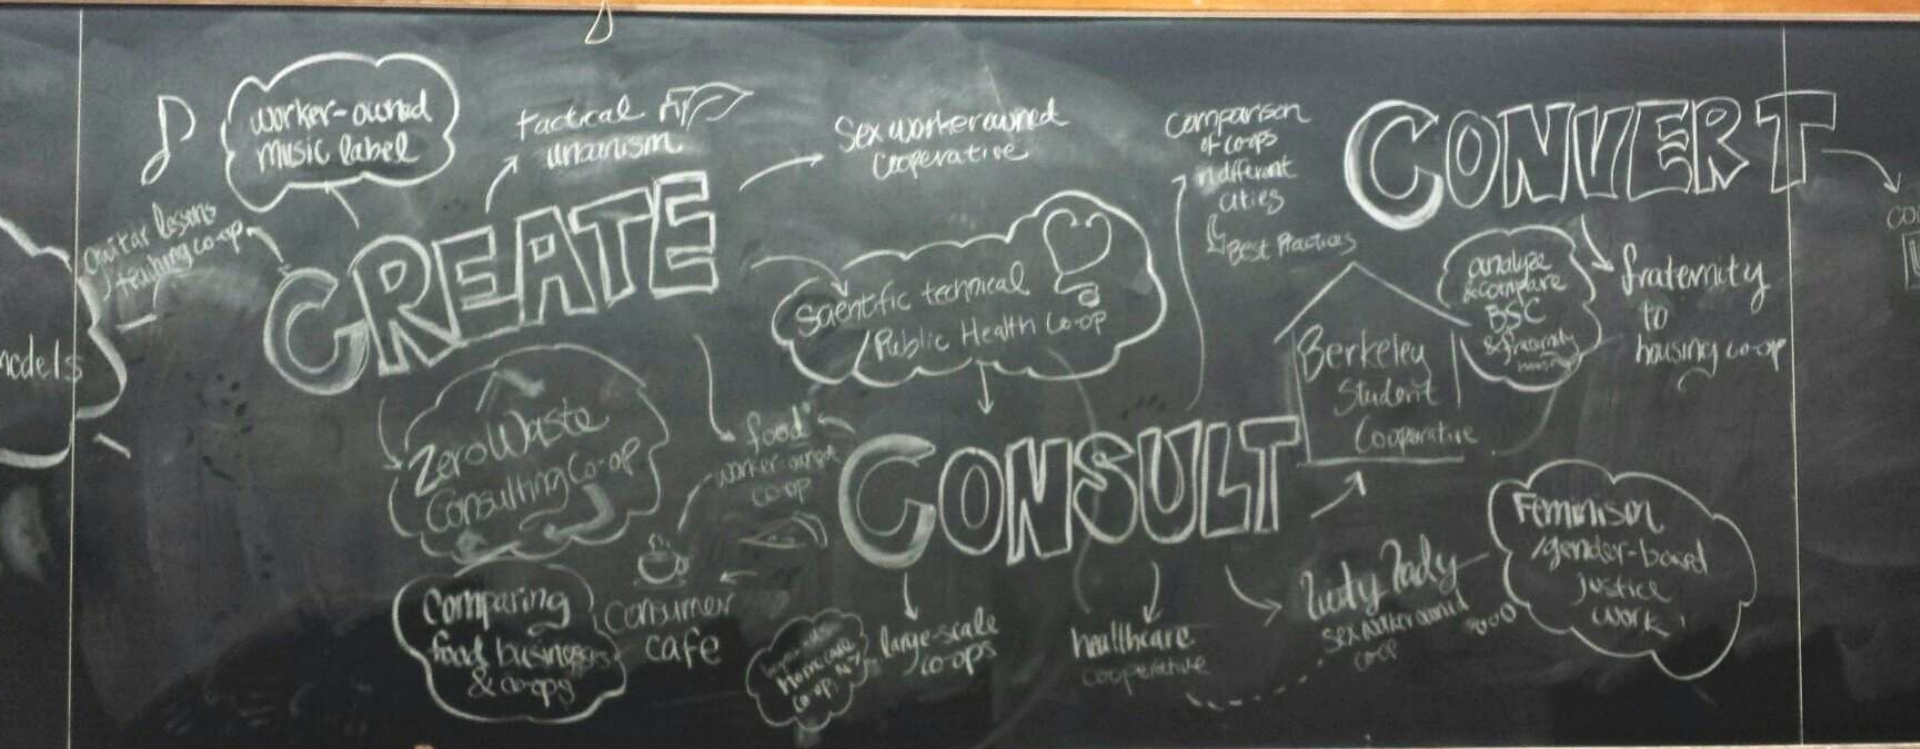 models
worker-owned
music label
guitar lessons
/teaching co-op
tactical
urbanism
CREATE
Sex worker owned
Cooperative
Scientific technical
/Public Health Co-op
comparison
of co-ops
in different
cities
Best Practices
CONVERT
analyze
& compare
BSC
& fraternity
housing
fraternity
to
housing co-op
Berkeley
Student
Cooperative
Zero Waste
Consulting Co-op
food
worker-owned
co-op
CONSULT
Comparing
food businesses
& co-ops
consumer
cafe
Home Care
Co-op, NY
large-scale
co-ops
healthcare
cooperative
Lusty Lady
sex worker owned
co-op
Feminism
/gender-based
justice
work